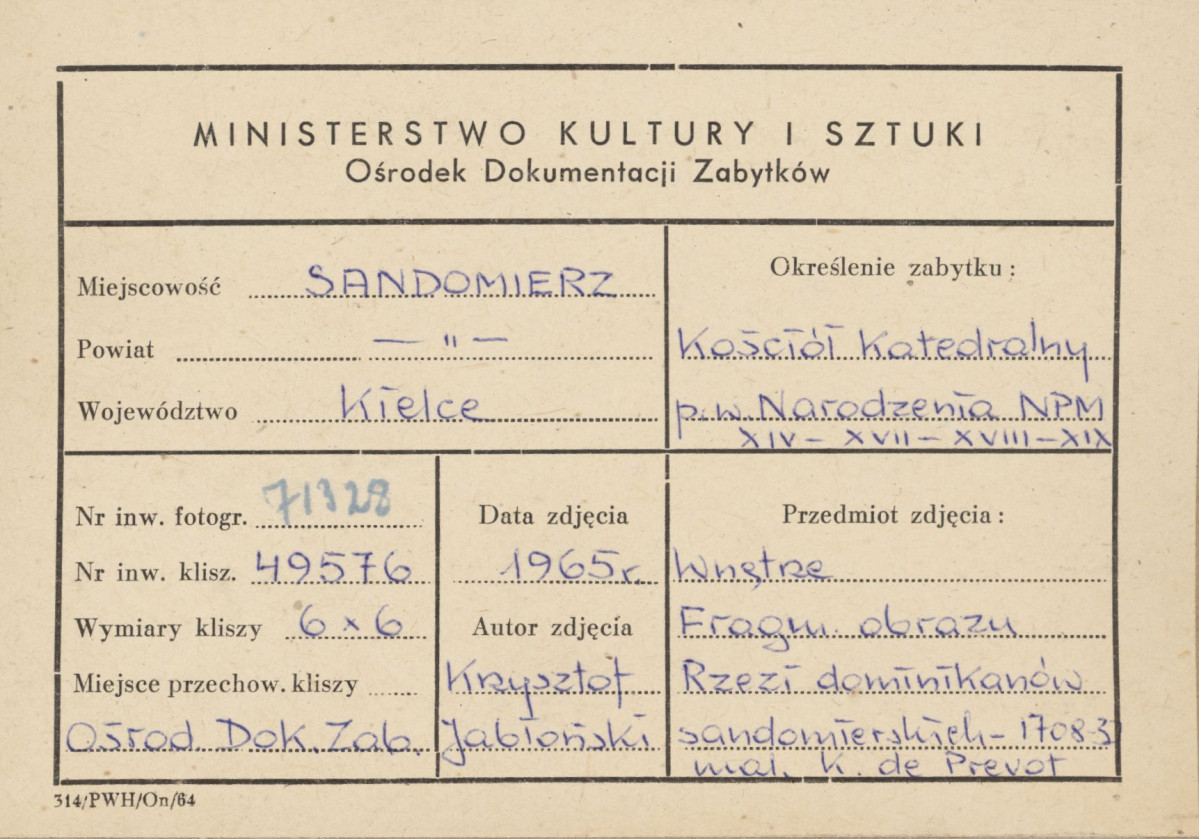 MINISTERSTWO KULTURY I SZTUKI
Ośrodek Dokumentacji Zabytków
Miejscowość SANDOMIERZ
Powiat — " —
Województwo Kielce
Określenie zabytku:
Kościół Katedralny
p.w. Narodzenia NPM
XIV – XVII – XVIII – XIX
Nr inw. fotogr. 71328
Nr inw. klisz. 49576
Wymiary kliszy 6 × 6
Miejsce przechow. kliszy
Ośrod. Dok. Zab.
Data zdjęcia
1965r.
Autor zdjęcia
Krzysztof
Jabłoński
Przedmiot zdjęcia:
Wnętrze
Fragm. obrazu
Rzezi dominikanów
sandomierskich – 1708-3
mal. K. de Prevot
314/PWH/On/64